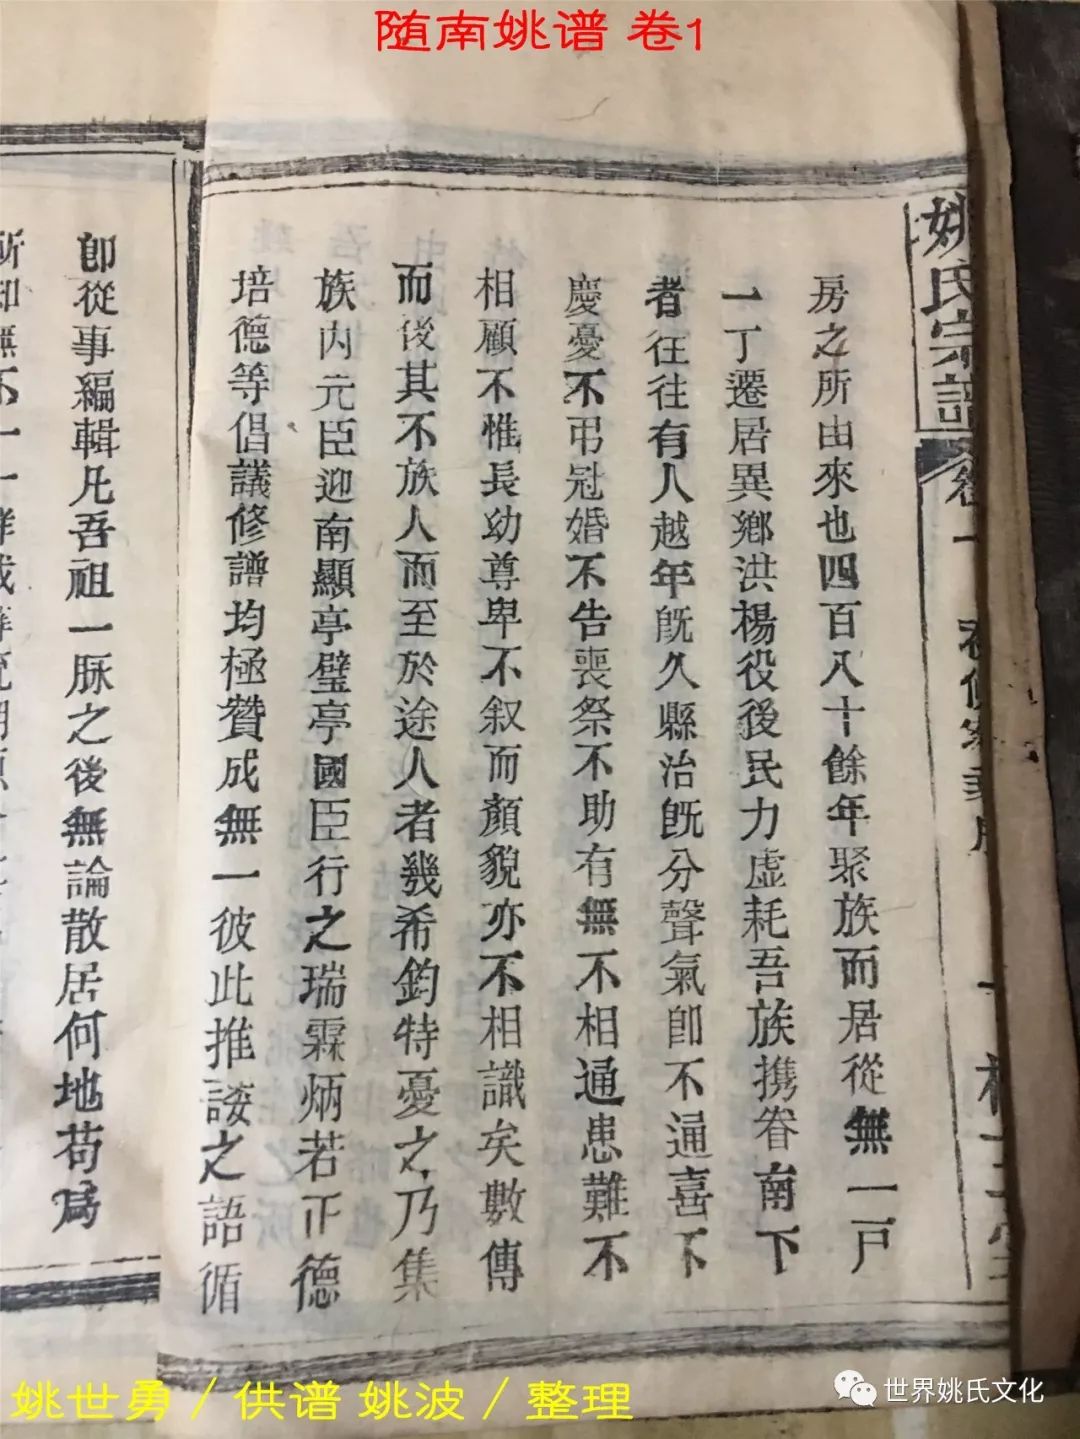 随南姚谱 卷1
姚氏宗譜
房之所由來也四百八十餘年聚族而居從無一戸
一丁遷居異鄉洪楊役後民力虛耗吾族携眷南下
者往往有人越年旣久縣治旣分聲氣卽不通喜不
慶憂不弔冠婚不告喪祭不助有無不相通患難不
相顧不惟長幼尊卑不叙而顏貌亦不相識矣數傳
而後其不族人而至於途人者幾希鈞特憂之乃集
族內元臣迎南顯亭璧亭國臣行之瑞霖炳若正德
培德等倡議修譜均極贊成無一彼此推諉之語循
卽從事編輯凡吾祖一脈之後無論散居何地苟爲
所知無不一一詳
姚世勇／供谱 姚波／整理
世界姚氏文化